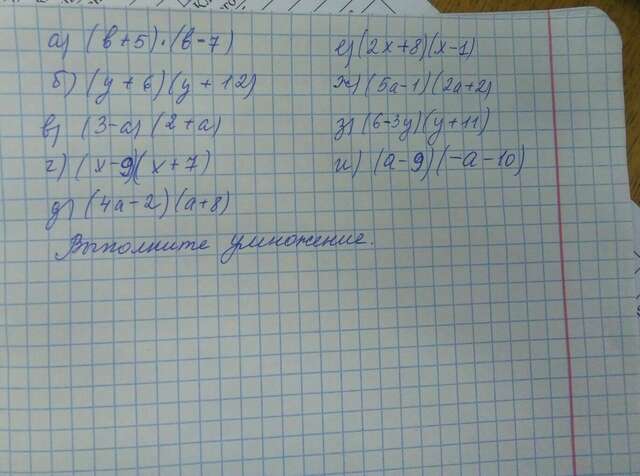 а) (в+5)·(в-7)
б) (y+6)(y+12)
в) (3-а)(2+а)
г) (x-9)(x+7)
д) (4а-2)(а+8)
Выполните умножение.
е) (2x+8)(x-1)
ж) (5а-1)(2а+2)
з) (6-3y)(y+11)
и) (а-9)(-а-10)